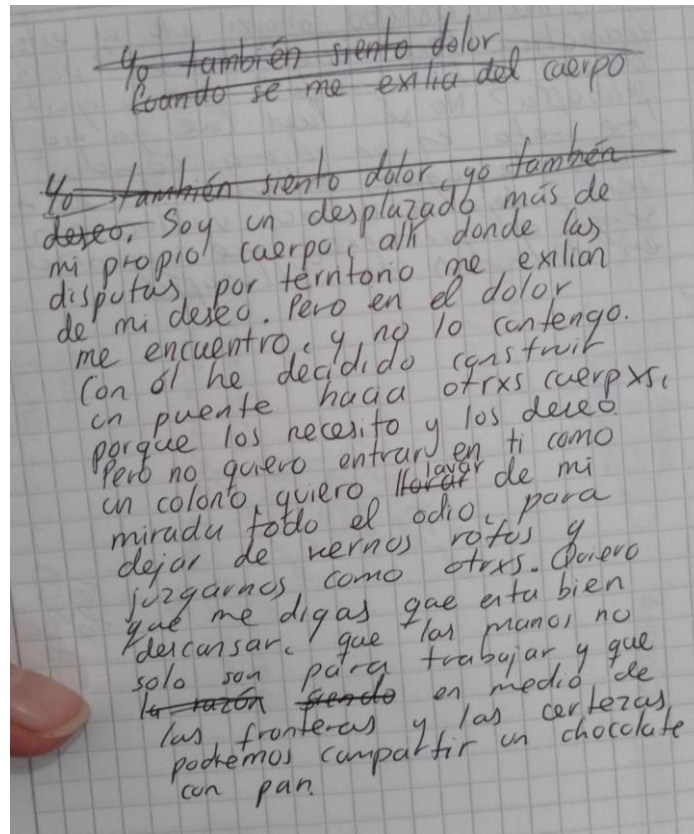 Yo también siento dolor
Cuando se me exilia del cuerpo
Yo también siento dolor, yo también
deseo. Soy un desplazado más de
mi propio cuerpo, allí donde las
disputas por territorio me exilian
de mi deseo. Pero en el dolor
me encuentro, y no lo contengo.
Con él he decidido construir
un puente hacia otrxs cuerpxs,
porque los necesito y los deseo.
Pero no quiero entrar en ti como
un colono, quiero llorar lavar de mi
mirada todo el odio, para
dejar de vernos rotos y
juzgarnos como otrxs. Quiero
que me digas que esta bien
descansar, que las manos no
solo son para trabajar y que
la razón siendo en medio de
las fronteras y las certezas,
podremos compartir un chocolate
con pan.